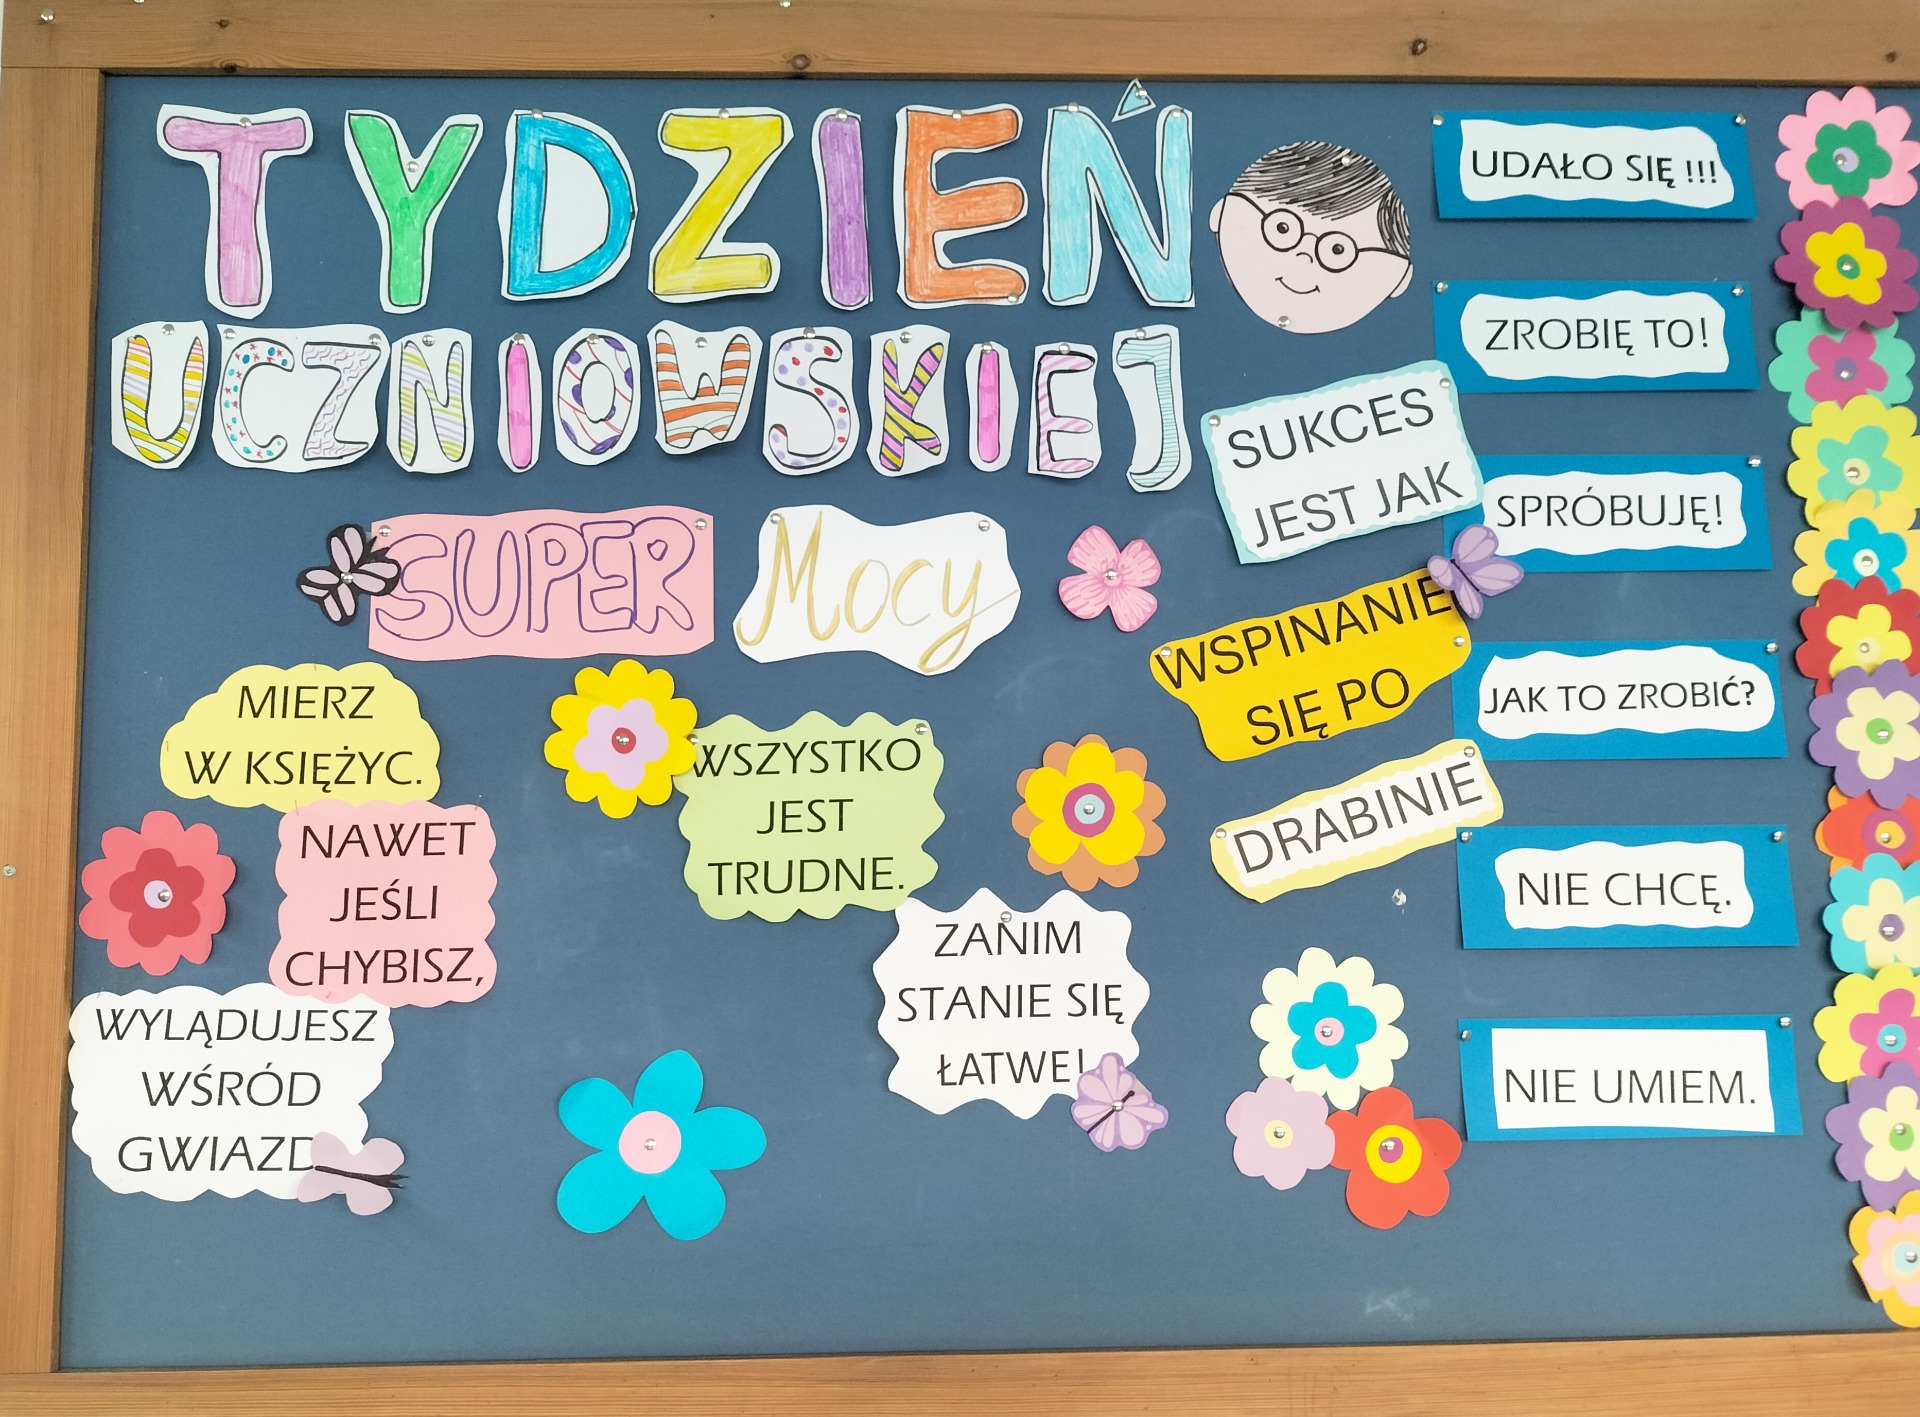 TYDZIEŃ
UCZNIOWSKIEJ
SUPER Mocy
MIERZ
W KSIĘŻYC.
NAWET
JEŚLI
CHYBISZ,
WYLĄDUJESZ
WŚRÓD
GWIAZD
WSZYSTKO
JEST
TRUDNE.
ZANIM
STANIE SIĘ
ŁATWE!
SUKCES
JEST JAK
WSPINANIE
SIĘ PO
DRABINIE
UDAŁO SIĘ !!!
ZROBIĘ TO!
SPRÓBUJĘ!
JAK TO ZROBIĆ?
NIE CHCĘ.
NIE UMIEM.